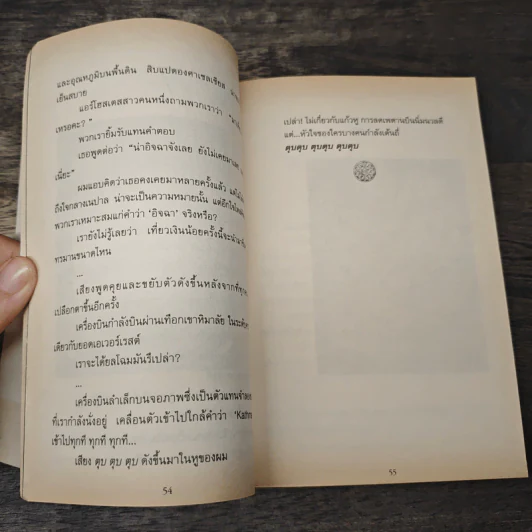 และอุณหภูมิบนพื้นดิน สิบแปดองศาเซลเซียส
เย็นสบาย
แอร์โฮสเตสสาวคนหนึ่งถามพวกเราว่า
เหรอคะ?"
พวกเรายิ้มรับแทนคำตอบ
เธอพูดต่อว่า "น่าอิจฉาจังเลย ยังไม่เคยมา
เนี่ยะ"
ผมแอบคิดว่าเธอคงเคยมาหลายครั้งแล้ว
ถึงใจกลางเนปาล น่าจะเป็นความหมายนั้น
พวกเราเหมาะสมแก่คำว่า 'อิจฉา' จริงหรือ?
เรายังไม่รู้เลยว่า เที่ยวเงินน้อยครั้งนี้จะ
ทรมานขนาดไหน
...
เสียงพูดคุยและขยับตัวดังขึ้นหลังจากที่
เปลือกตาขึ้นอีกครั้ง
เครื่องบินกำลังบินผ่านเทือกเขาหิมาลัย ใน
เดียวกับยอดเอเวอร์เรสต์
เราจะได้ยลโฉมมันรึเปล่า?
...
เครื่องบินลำเล็กบนจอภาพซึ่งเป็นตัวแทน
ที่เรากำลังนั่งอยู่ เคลื่อนตัวเข้าไปใกล้คำว่า
เข้าไปทุกที ทุกที ทุกที...
เสียง ตุบ ตุบ ตุบ ดังขึ้นมาในหูของผม
54
เปล่า! ไม่เกี่ยวกับแก้วหู การลดเพดานบินนิ่มนวลดี
แต่...หัวใจของใครบางคนกำลังเต้นถี่
ตุบตุบ ตุบตุบ ตุบตุบ
55